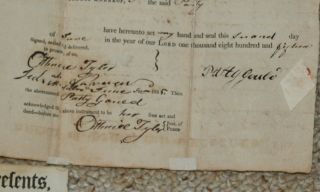 the said Patty
have hereunto set my hand and seal this second day
of June in the year of our LORD one thousand eight hundred and fifteen
Signed, sealed and delivered,
in presence of us.
Othniel Tyler
Patty Gould
June 1815. Then
the abovenamed Patty Gould
acknowledged the above instrument to be her free act and
deed—before me, Othniel Tyler Just. of
Peace
resents,